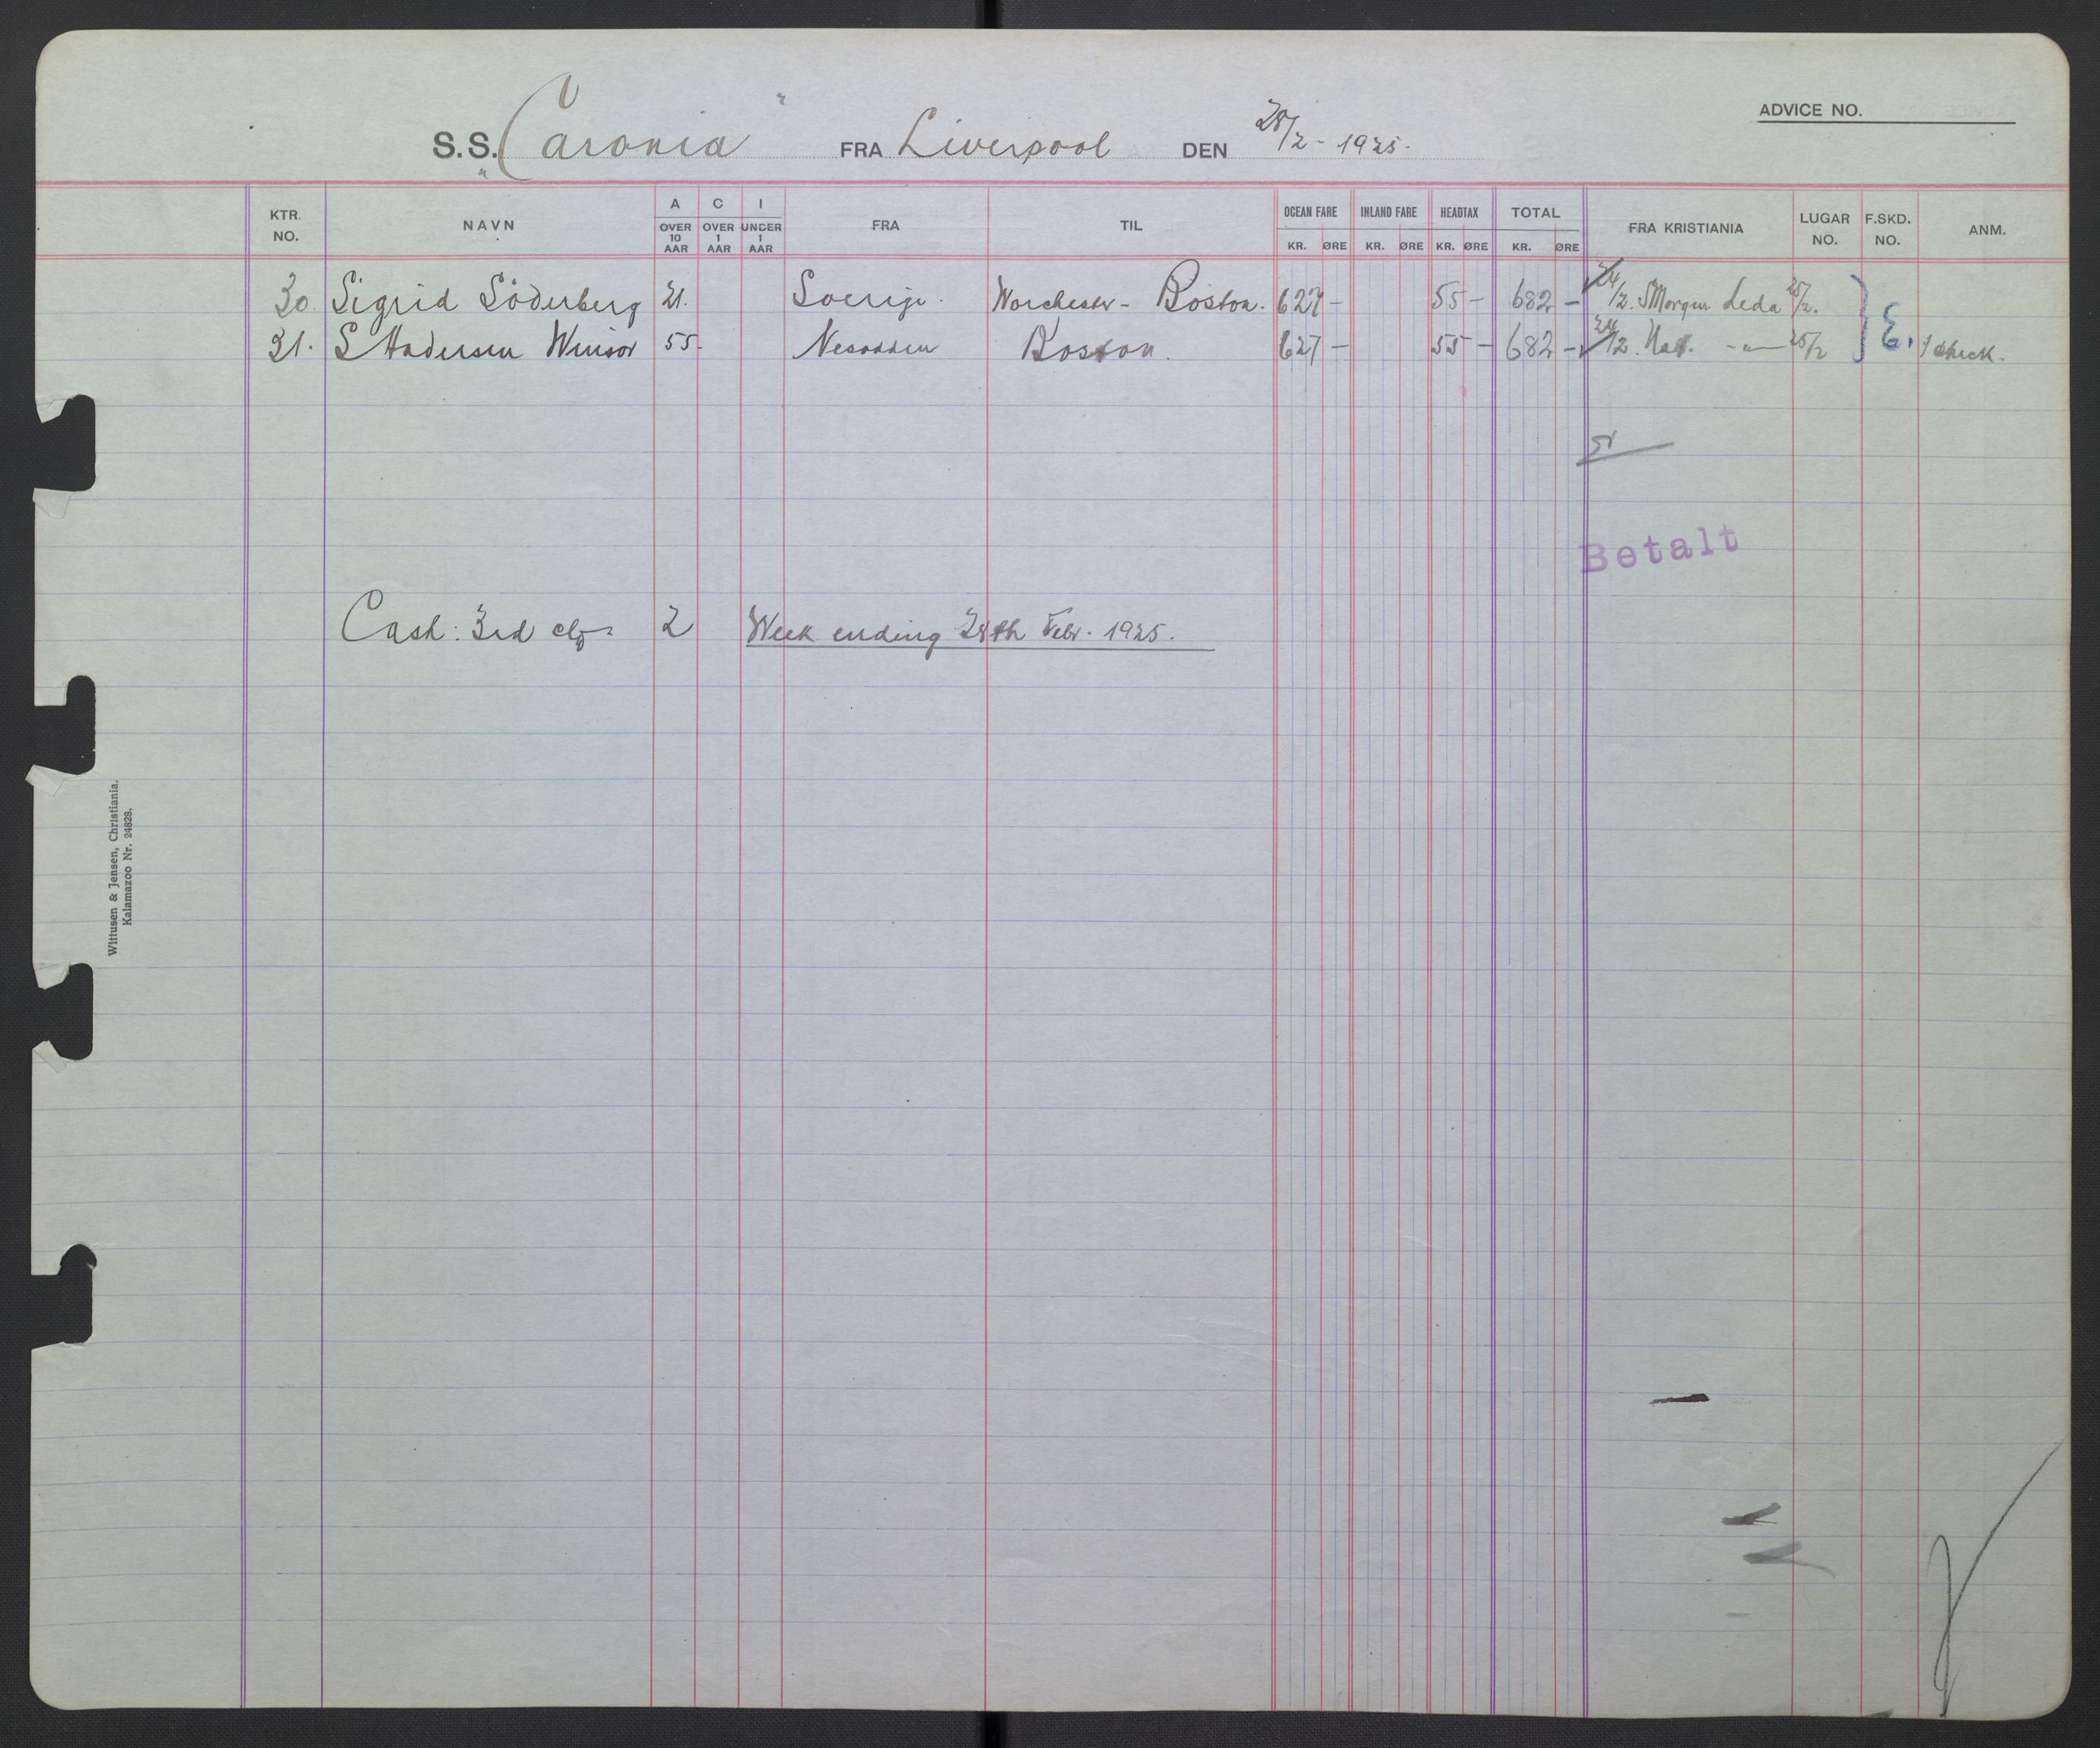 ADVICE NO.
S.S. "Caronia" FRA Liverpool DEN 28/2 - 1925.
KTR. NO. NAVN A OVER 10 AAR C OVER 1 AAR I UNDER 1 AAR FRA TIL OCEAN FARE KR. ØRE INLAND FARE KR. ØRE HEADTAX KR. ØRE TOTAL KR. ØRE FRA KRISTIANIA LUGAR NO. F.SKD. NO. ANM.
30. Sigrid Söderberg 21. Sverige. Worchester - Boston. 627 - 55 - 682 - 24/2. Morgen Leda 25/2.
31. S Andersen Winsor 55. Nesodden Boston. 627 - 55 - 682 - 24/2. - " - 25/2 } E. 1 check.
Betalt
Cash: 3rd cl 2 Week ending 28th Febr. 1925.
Wittusen & Jensen, Christiania.
Kalamazoo Nr. 24828.